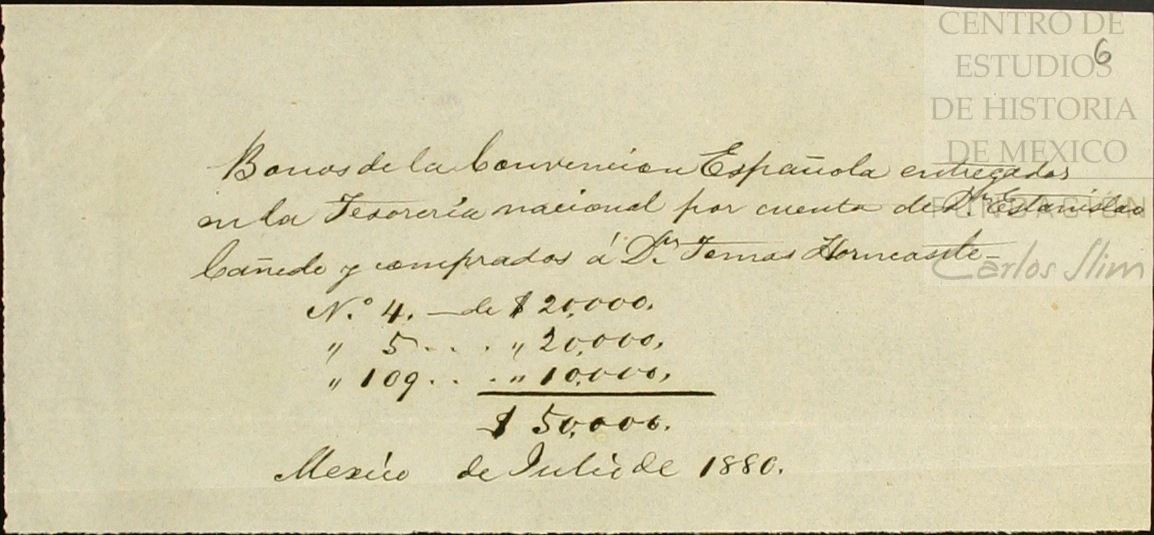 CENTRO DE
ESTUDIOS
DE HISTORIA
DE MEXICO
FUNDACION
Carlos Slim
6
Bonos de la Convencion Española entregados
en la Tesorería nacional por cuenta de Dn Estanislao
Cañedo y comprados á Dn Tomas Horncastle-
N.o 4. — de $ 20,000.
" 5 . . . " 20,000,
" 109 . . . " 10,000,
$ 50,000.
Mexico de Julio de 1880.